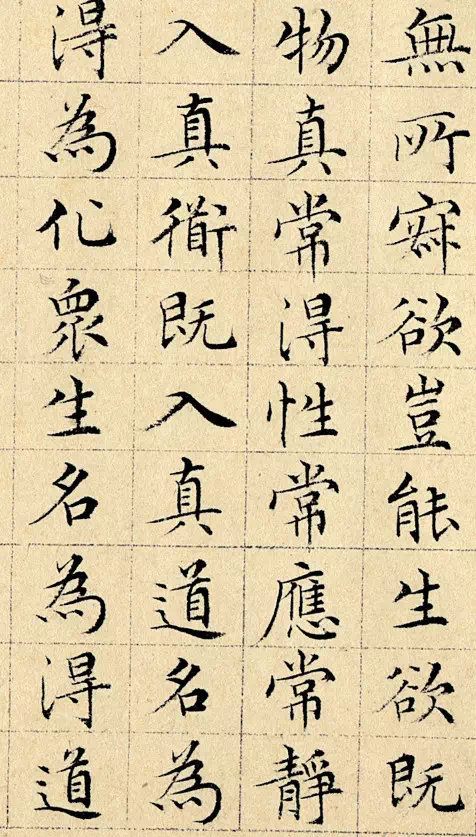 無所寂欲豈能生欲既
物真常得性常應常靜
入真衜既入真道名為
得為化衆生名為得道